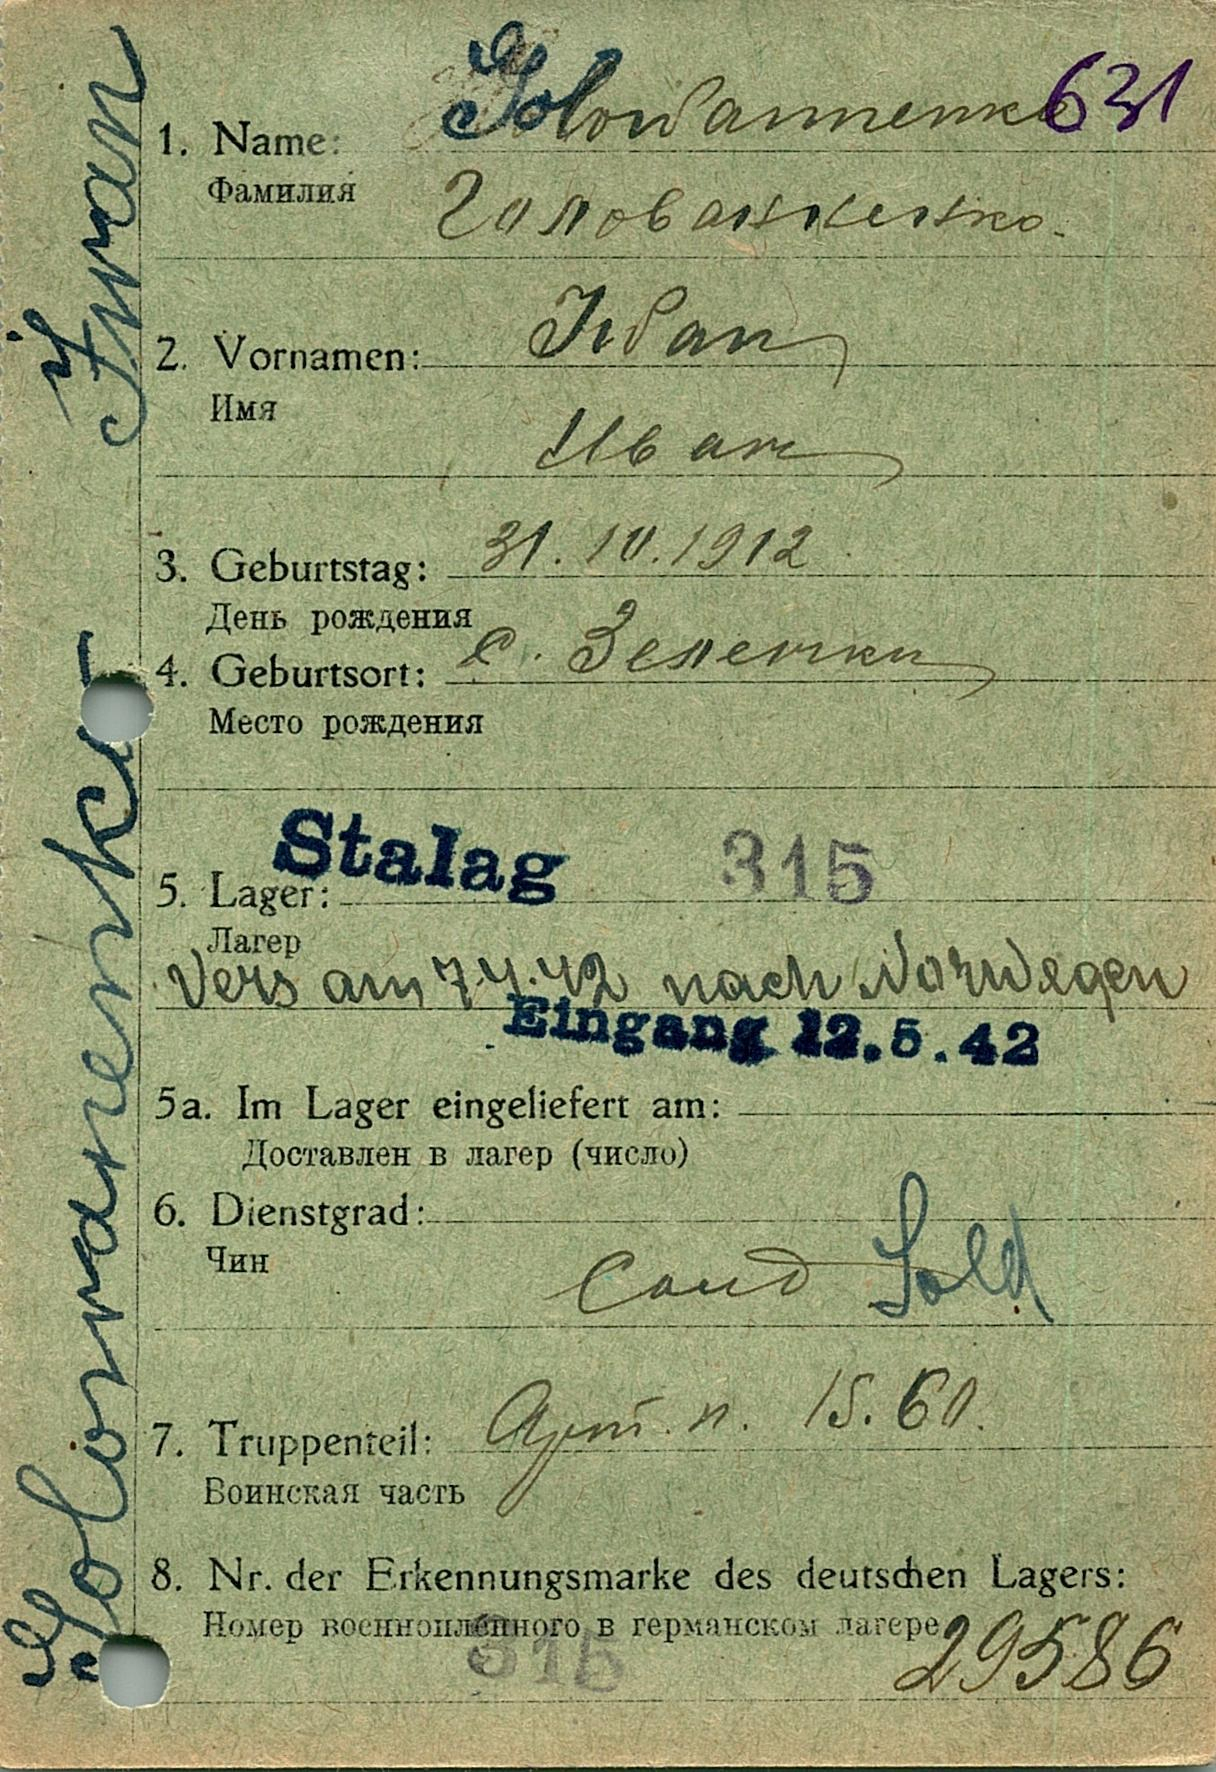 Golowanenko Iwan
631
1. Name: Golowannenko
Фамилия Голованненко.
2. Vornamen: Iwan
Имя
Иван
3. Geburtstag: 31.10.1912
День рождения
4. Geburtsort: с. Зеленки
Место рождения
Stalag 315
5. Lager:
Лагер
Vers am 7.4.42 nach Norwegen
Eingang 12.5.42
5a. Im Lager eingeliefert am:
Доставлен в лагер (число)
6. Dienstgrad:
Чин
Солд Sold
7. Truppenteil: Арт. п. 15.60.
Воинская часть
8. Nr. der Erkennungsmarke des deutschen Lagers:
Номер военнопленного в германском лагере 29586
315